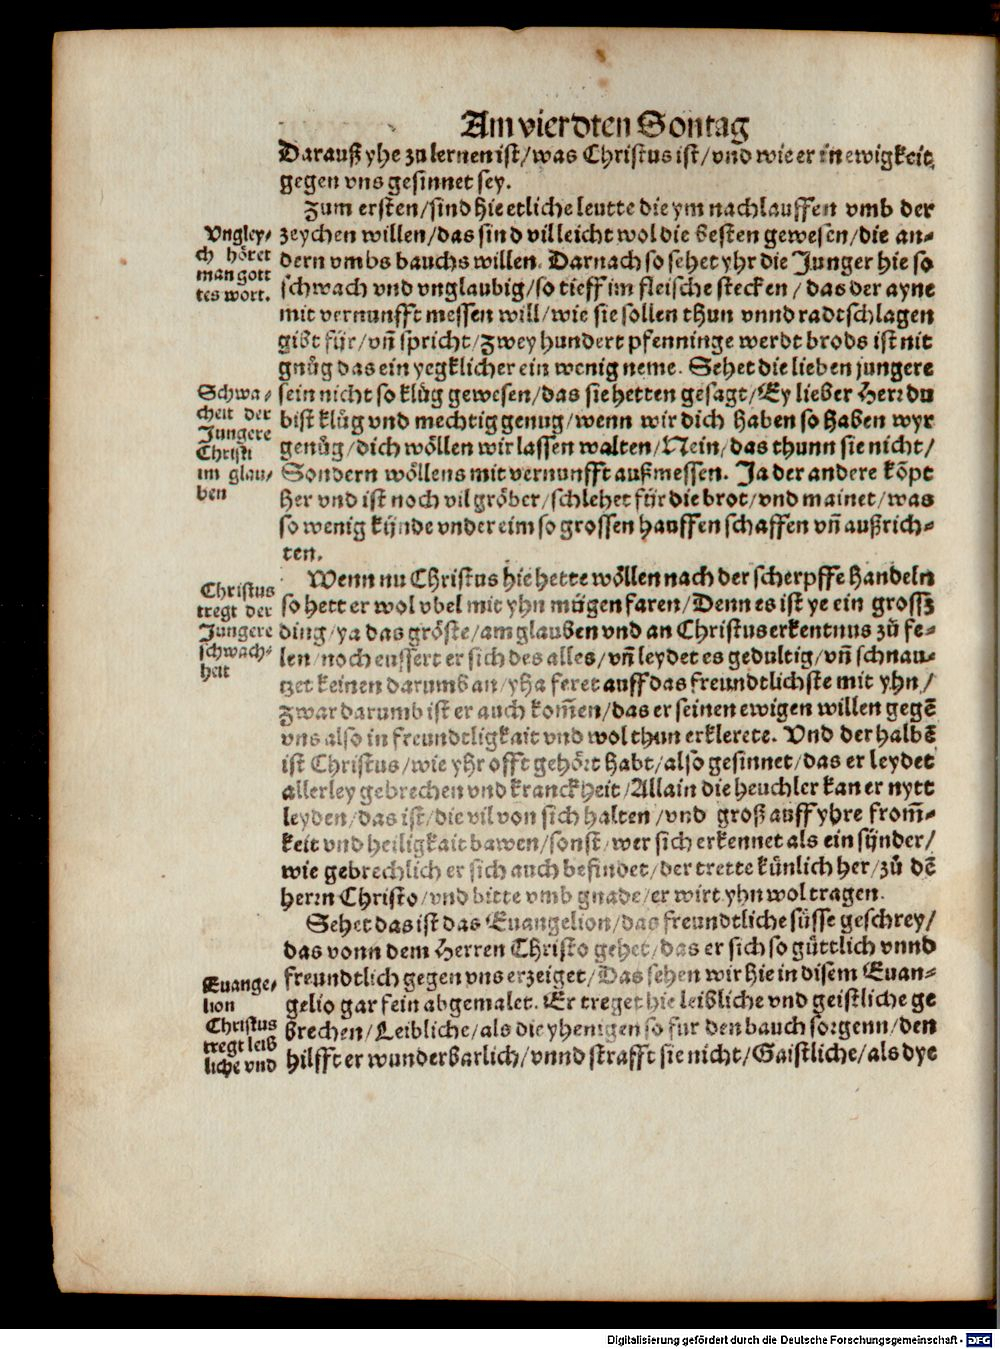 Am vierdten Sontag
Darauß yhe zu lernen ist/was Christus ist/vnd wie er in ewigkeit
gegen vns gesinnet sey.
Zum ersten/sind hie etliche leutte die ym nachlauffen vmb der
zeychen willen/das sind villeicht wol die besten gewesen/die an-
dern vmbs bauchs willen. Darnach so sehet yhr die Junger hie so
schwach vnd vnglaubig/so tieff im fleische stecken/das der ayne
mit vernunfft messen will/wie sie sollen thun vnnd radtschlagen
gibt für/vñ spricht/zwey hundert pfenninge werdt brods ist nit
gnůg das ein yegklicher ein wenig neme. Sehet die lieben jungere
sein nicht so klůg gewesen/das sie hetten gesagt/Ey lieber Herr du
bist klůg vnd mechtig genug/wenn wir dich haben so haben wyr
genůg/dich wöllen wir lassen walten/Nein/das thunn sie nicht/
Sondern wöllens mit vernunfft außmessen. Ja der andere kõpt
her vnd ist noch vil gröber/schlehet für die brot/vnd mainet/was
so wenig künde vnder eim so grossen hauffen schaffen vñ außrich-
ten.
Wenn nu Christus hie hette wöllen nach der scherpffe handeln
so hett er wol vbel mit yhn mügen faren/Denn es ist ye ein grossz
ding/ya das gröste/am glauben vnd an Christus erkentnus zů fe-
len/noch eussert er sich des alles/vñ leydet es gedultig/vñ schnau-
tzet keinen darumb an/yha feret auff das freundtlichste mit yhn/
Zwar darumb ist er auch kom̃en/das er seinen ewigen willen gegẽ
vns also in freundtligkait vnd wolthun erklerete. Vnd der halbẽ
ist Christus/wie yhr offt gehört habt/also gesinnet/das er leydet
allerley gebrechen vnd kranckheit/Allain die heuchler kan er nytt
leyden/das ist/die vil von sich halten/vnd groß auff yhre from̃-
keit vnd heiligkait bawen/sonst/wer sich erkennet als ein sünder/
wie gebrechlich er sich auch befindet/der trette künlich her/zů dẽ
herrn Christo/vnd bitte vmb gnade/er wirt yhn wol tragen.
Sehet das ist das Euangelion/das freundtliche süsse geschrey/
das vonn dem Herren Christo gehet/das er sich so güttlich vnnd
freundtlich gegen vns erzeiget/Das sehen wir hie in disem Euan-
gelio gar fein abgemalet. Er treget hie leibliche vnd geistliche ge
brechen/Leibliche/als die yhenigen so fur den bauch sorgenn/den
hilfft er wunderbarlich/vnnd strafft sie nicht/Gaistliche/als dye
Vngley-
ch höret
man gott
tes wort.
Schwa-
cheit der
Jungere
Christi
im glau-
ben
Christus
tregt der
Jungere
schwach-
heit
Euange-
lion
Christus
tregt leib
liche vnd
Digitalisierung gefördert durch die Deutsche Forschungsgemeinschaft - DFG